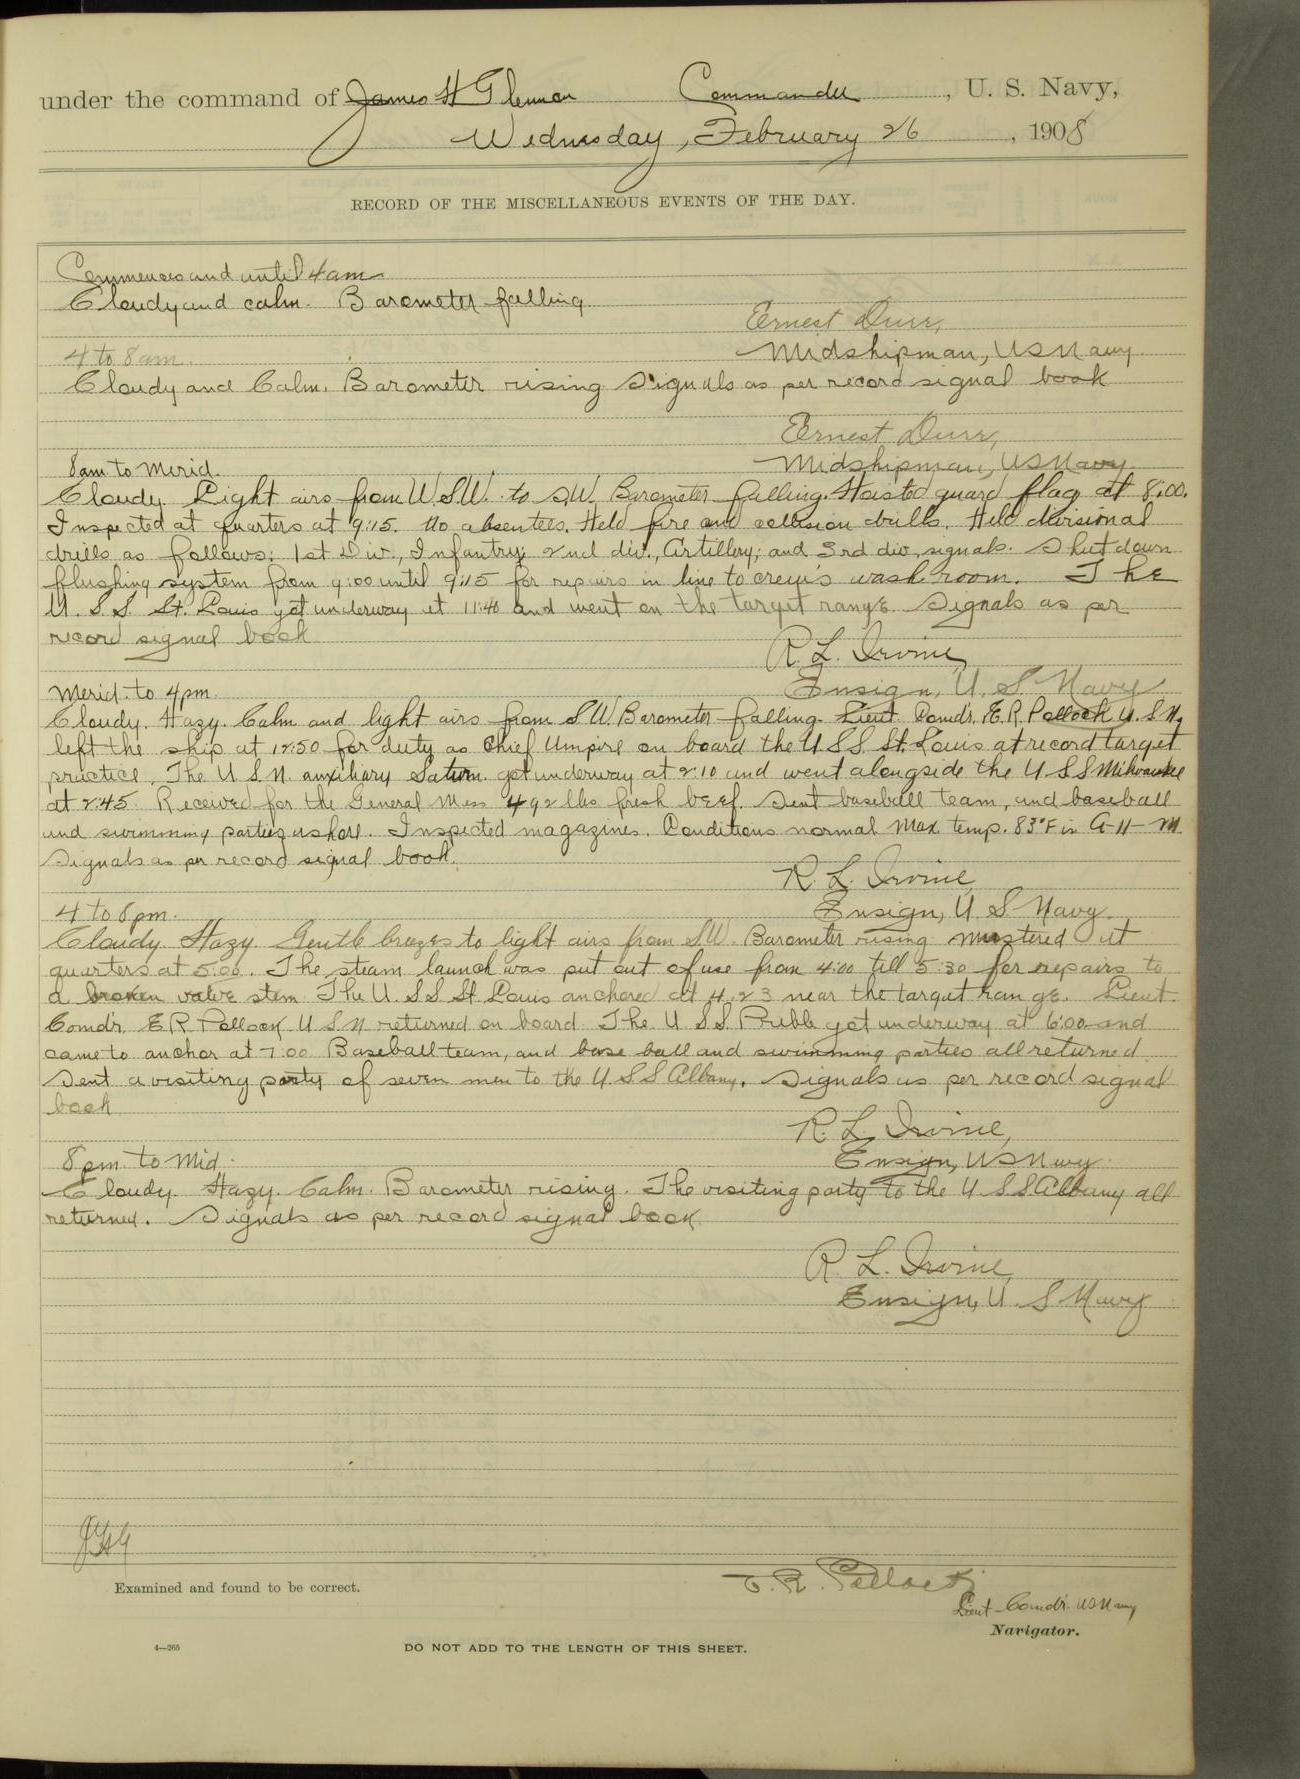 under the command of James H Glennon Commander, U. S. Navy,
Wednesday, February 26, 1908
RECORD OF THE MISCELLANEOUS EVENTS OF THE DAY.
Commences and until 4am
Cloudy and calm. Barometer falling
Ernest Durr,
Midshipman, US Navy.
4 to 8am.
Cloudy and Calm. Barometer rising. Signals as per record signal book
Ernest Durr,
Midshipman, US Navy.
8am to Merid.
Cloudy. Light airs from W.S.W. to S.W. Barometer falling. Hoisted guard flag at 8:00.
Inspected at quarters at 9:15. No absentees. Held fire and collision drills. Held divisional
drills as follows: 1st Div., Infantry; 2nd div., Artillery; and 3rd div, signals. Shut down
flushing system from 9:00 until 9:15 for repairs in line to crew's wash room. The
U. S. S. St. Louis got underway at 11:40 and went on the target range. Signals as per
record signal book
R. L. Irvine,
Ensign, U. S. Navy
Merid. to 4pm.
Cloudy. Hazy. Calm and light airs from S.W. Barometer falling. Lieut. Comd'r. E. R. Pollock U. S. N.
left the ship at 12:50 for duty as Chief Umpire on board the U S S. St. Louis at record target
practice. The U. S. N. auxiliary Saturn got underway at 2:10 and went alongside the U S S Milwaukee
at 2:45. Received for the General Mess 492 lbs fresh beef. Sent baseball team, and baseball
and swimming parties ashore. Inspected magazines. Conditions normal Max temp. 83°F in A-11-M
Signals as per record signal book.
R. L. Irvine,
Ensign, U. S Navy.
4 to 8pm.
Cloudy. Hazy. Gentle breezes to light airs from S.W. Barometer rising. Mustered at
quarters at 5:00. The steam launch was put out of use from 4:00 till 5:30 for repairs to
a broken valve stem. The U. S S St. Louis anchored at 4.23 near the target range. Lieut.
Comd'r. E R Pollock U S N returned on board. The U. S S. Preble got underway at 6:00 and
came to anchor at 7:00 Baseball team, and base ball and swimming parties all returned.
Sent a visiting party of seven men to the U. S S Albany. Signals as per record signal
book
R. L. Irvine,
Ensign, US Navy.
8pm to Mid.
Cloudy. Hazy. Calm. Barometer rising. The visiting party to the U S S Albany all
returned. Signals as per record signal book.
R. L. Irvine,
Ensign, U. S Navy
JHG
Examined and found to be correct.
E. R. Pollock
Lieut-Comdr. US Navy
Navigator.
4—265
DO NOT ADD TO THE LENGTH OF THIS SHEET.